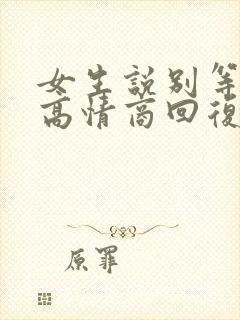 女生說別等
高情商回復
原罪